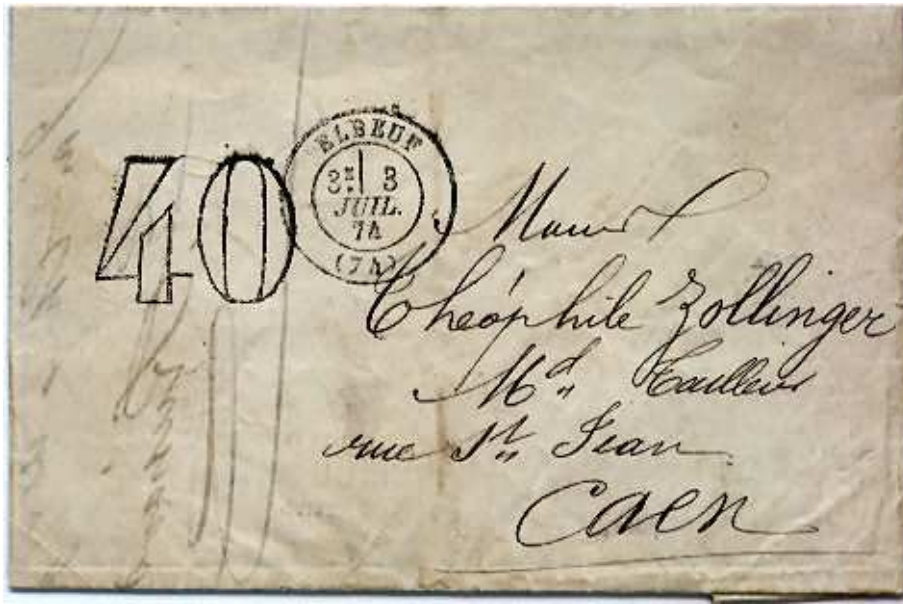 40
ELBEUF
3E 3
JUIL.
74
(74)
Théophile Zollinger
Md Tailleur
rue St Jean
Caen